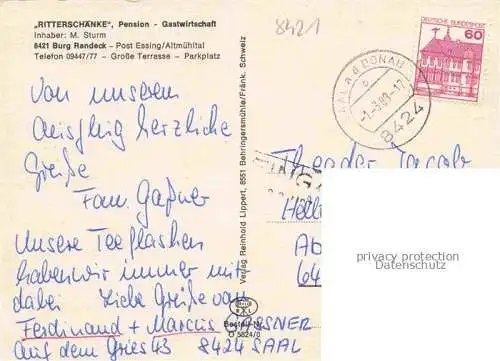 „RITTERSCHÄNKE", Pension - Gastwirtschaft
Inhaber: M. Sturm
8421 Burg Randeck - Post Essing/Altmühltal
Telefon 09447/77 – Große Terrasse – Parkplatz
8421
DEUTSCHE BUNDESPOST
60
SAAL A D DONAU
8424
Von unserem
Ausflug herzliche
Grüße
Fam. Gaßner
Unsere Teeflaschen
haben wir immer mit
dabei Liebe Grüße von
Ferdinand + Marcus GASSNER
Auf dem Gries 43 8424 SAAL
Verlag Reinhold Lippert, 8551 Behringersmühle/Fränk. Schweiz
Bestell-Nr.
O 5824/0
Theodor Jacob
privacy protection
Datenschutz